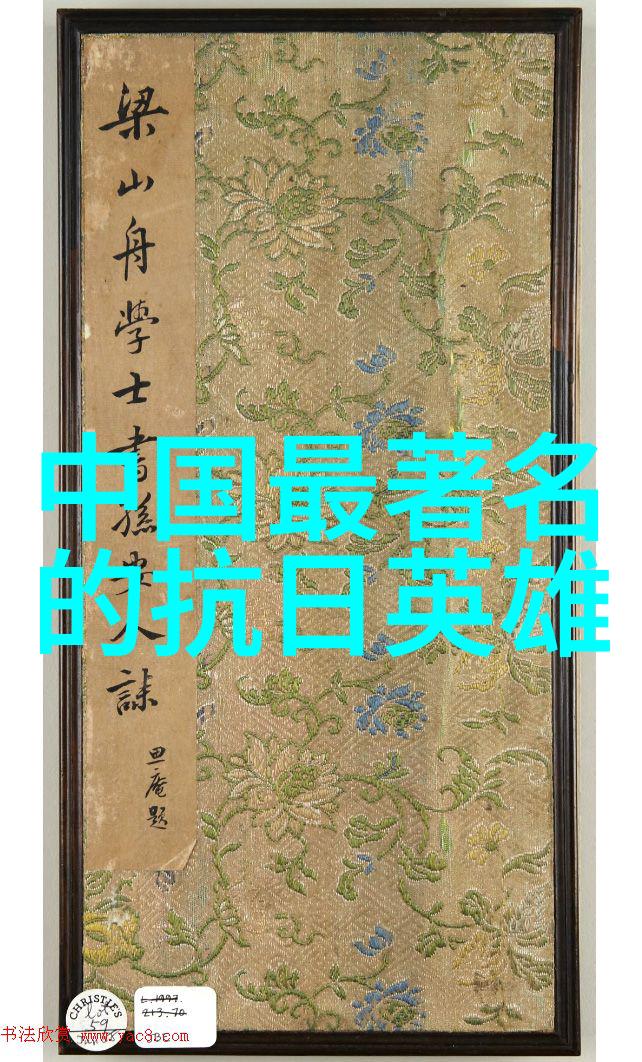 中国最著名
的抗日英雄
梁山舟學士書孫安人誄
思庵題
CHRISTIE'S
lot
59
L.1997.
213.70
书法欣赏 www.yac8.com